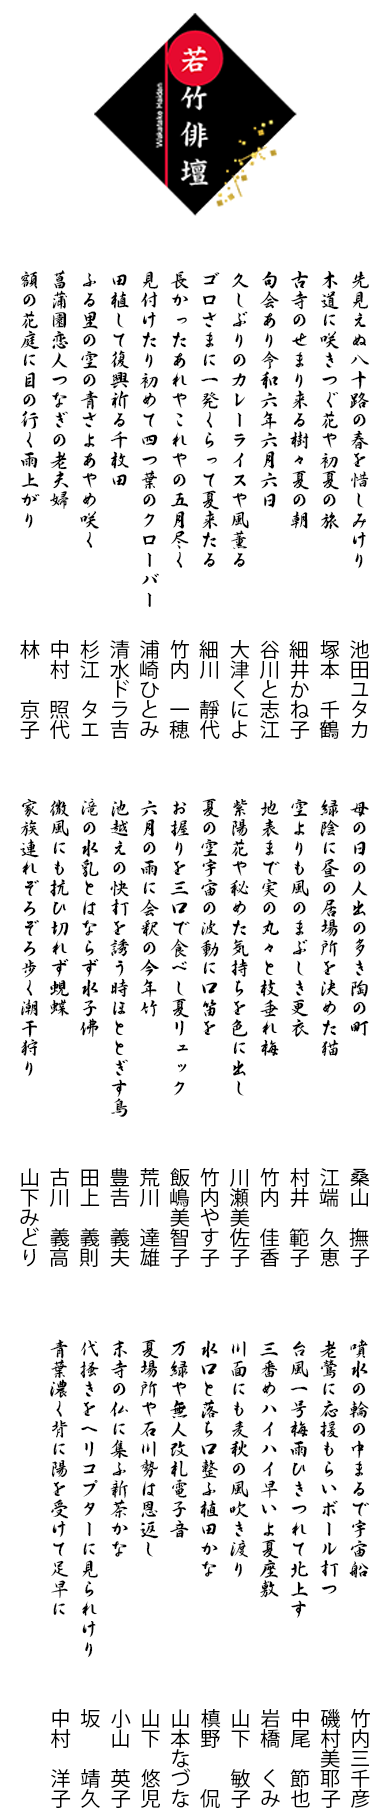 若竹俳壇
Wakatake Haidan
先見えぬ八十路の春を惜しみけり
池田ユタカ
木道に咲きつぐ花や初夏の旅
塚本 千鶴
古寺のせまり来る樹々夏の朝
細井かね子
句会あり令和六年六月六日
谷川と志江
久しぶりのカレーライスや風薫る
大津くによ
ゴロさまに一発くらって夏来たる
細川 靜代
長かったあれやこれやの五月尽く
竹内 一穂
見付けたり初めて四つ葉のクローバー
浦崎ひとみ
田植して復興祈る千枚田
清水ドラ吉
ふる里の空の青さよあやめ咲く
杉江 タエ
菖蒲園恋人つなぎの老夫婦
中村 照代
額の花庭に目の行く雨上がり
林 京子
母の日の人出の多き陶の町
桑山 撫子
緑陰に昼の居場所を決めた猫
江端 久恵
空よりも風のまぶしき更衣
村井 範子
地表まで実の丸々と枝垂れ梅
竹内 佳香
紫陽花や秘めた気持ちを色に出し
川瀬美佐子
夏の空宇宙の波動に口笛を
竹内やす子
お握りを三口で食べし夏リュック
飯嶋美智子
六月の雨に会釈の今年竹
荒川 達雄
池越えの快打を誘う時ほととぎす鳥
豊𠮷 義夫
滝の水乳とはならず水子佛
田上 義則
微風にも抗ひ切れず蜆蝶
古川 義高
家族連れぞろぞろ歩く潮干狩り
山下みどり
噴水の輪の中まるで宇宙船
竹内三千彦
老鶯に応援もらいボール打つ
磯村美耶子
台風一号梅雨ひきつれて北上す
中尾 節也
三番めハイハイ早いよ夏座敷
岩橋 くみ
川面にも麦秋の風吹き渡り
山下 敏子
水口と落ち口整ふ植田かな
槙野 侃
万緑や無人改札電子音
山本なづな
夏場所や石川勢は恩返し
山下 悠児
末寺の仏に集ふ新茶かな
小山 英子
代掻きをヘリコプターに見られけり
坂 靖久
青葉濃く背に陽を受けて足早に
中村 洋子